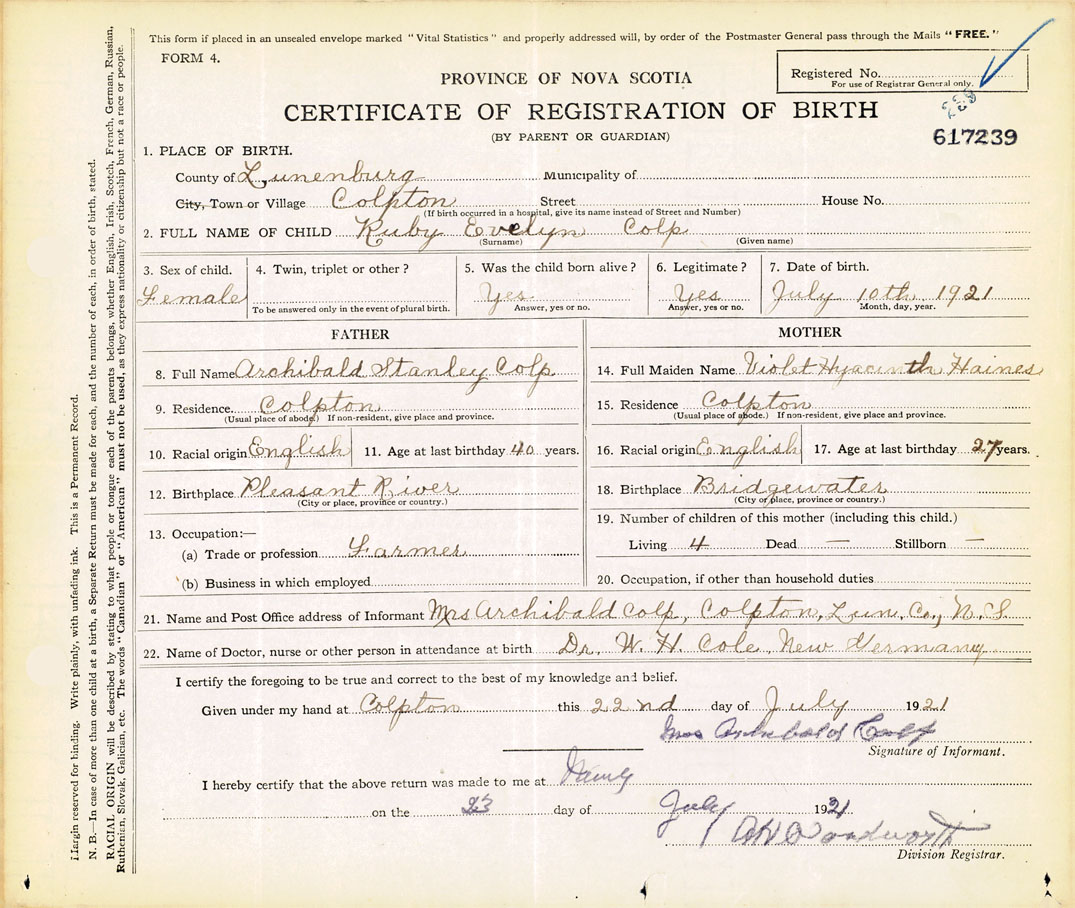 This form if placed in an unsealed envelope marked "Vital Statistics" and properly addressed will, by order of the Postmaster General pass through the Mails "FREE."
FORM 4.
Registered No.
For use of Registrar General only.
PROVINCE OF NOVA SCOTIA
CERTIFICATE OF REGISTRATION OF BIRTH
(BY PARENT OR GUARDIAN)
617239
1. PLACE OF BIRTH.
County of Lunenburg Municipality of
City, Town or Village Colpton Street House No.
(If birth occurred in a hospital, give its name instead of Street and Number)
2. FULL NAME OF CHILD Ruby Evelyn Colp
(Surname) (Given name)
3. Sex of child. 4. Twin, triplet or other? 5. Was the child born alive? 6. Legitimate? 7. Date of birth.
Female Yes Yes July 10th 1921
To be answered only in the event of plural birth. Answer, yes or no. Answer, yes or no. Month, day, year.
FATHER
8. Full Name Archibald Stanley Colp
9. Residence. Colpton
(Usual place of abode.) If non-resident, give place and province.
10. Racial origin English 11. Age at last birthday 40 years.
12. Birthplace Pleasant River
(City or place, province or country.)
13. Occupation:—
(a) Trade or profession Farmer
(b) Business in which employed
MOTHER
14. Full Maiden Name Violet Hyacinth Haines
15. Residence Colpton
(Usual place of abode.) If non-resident, give place and province.
16. Racial origin English 17. Age at last birthday 27 years.
18. Birthplace Bridgewater
(City or place, province or country.)
19. Number of children of this mother (including this child.)
Living 4 Dead — Stillborn —
20. Occupation, if other than household duties
21. Name and Post Office address of Informant Mrs Archibald Colp, Colpton, Lun. Co., N. S.
22. Name of Doctor, nurse or other person in attendance at birth Dr. W. H. Cole, New Germany
I certify the foregoing to be true and correct to the best of my knowledge and belief.
Given under my hand at Colpton this 22nd day of July 1921
Mrs Archibald Colp
Signature of Informant.
I hereby certify that the above return was made to me at
on the 23 day of July 1921
Division Registrar.
Margin reserved for binding. Write plainly, with unfading ink. This is a Permanent Record.
N. B.—In case of more than one child at a birth, a Separate Return must be made for each, and the number of each, in order of birth, stated.
RACIAL ORIGIN will be described by stating to what people or tongue each of the parents belongs, whether English, Irish, Scotch, French, German, Russian,
Ruthenian, Slovak, Galician, etc. The words "Canadian" or "American" must not be used, as they express nationality or citizenship but not a race or people.